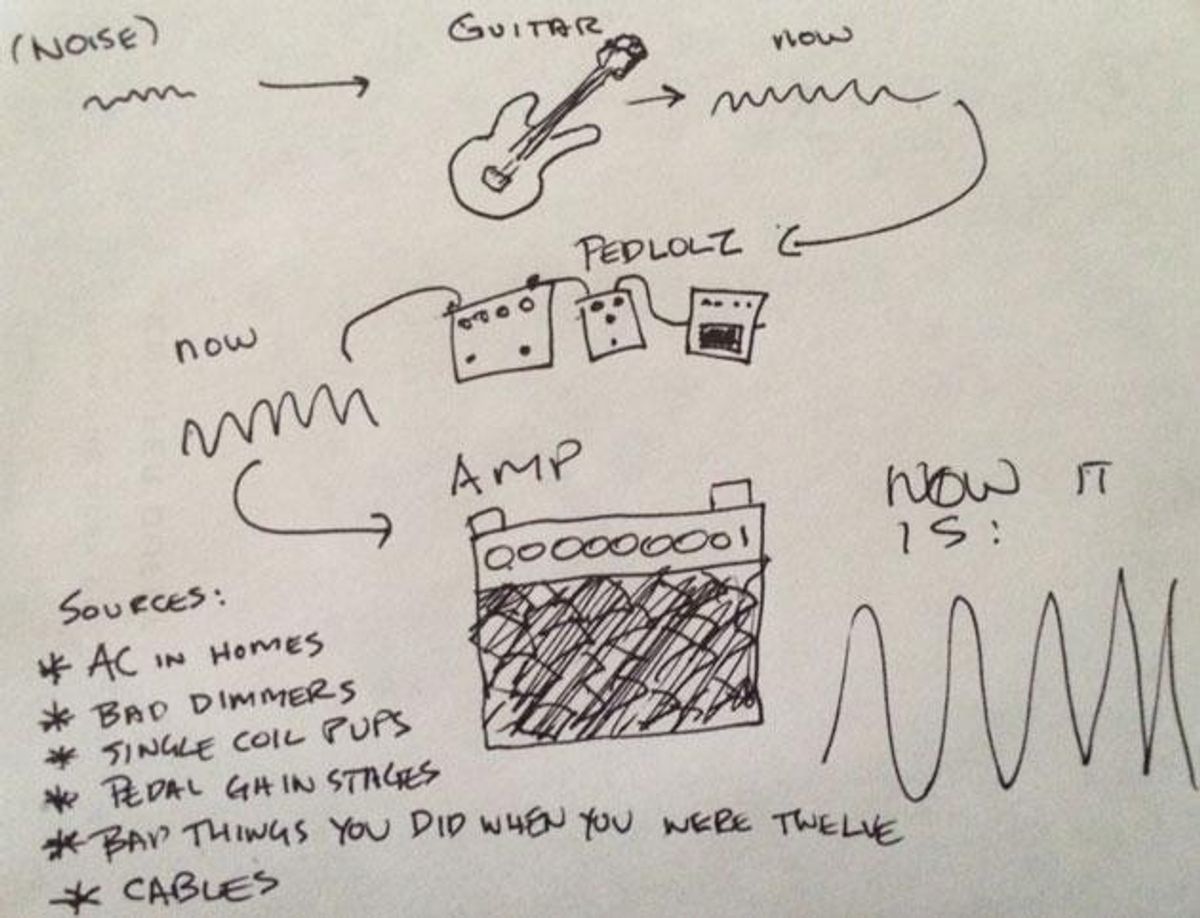 (NOISE)
GUITAR
now
PEDLOLZ
now
AMP
NOW IT
IS:
SOURCES:
* AC IN HOMES
* BAD DIMMERS
* SINGLE COIL PUPS
* PEDAL GAIN STAGES
* BAD THINGS YOU DID WHEN YOU WERE TWELVE
* CABLES